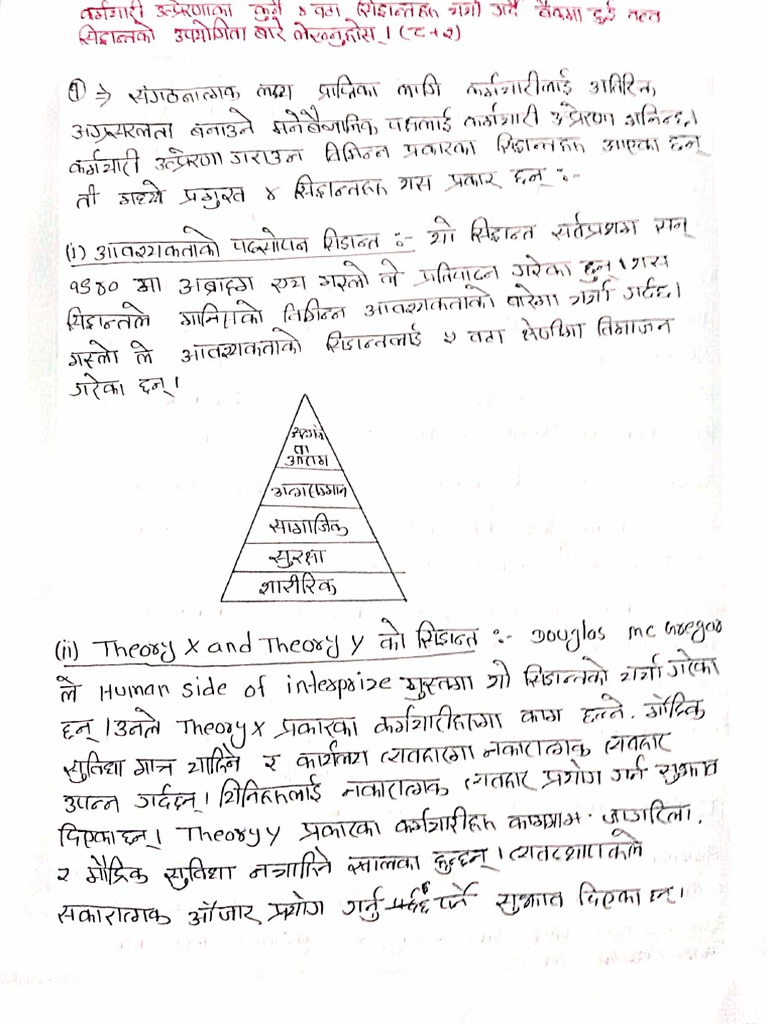 कर्मचारी उत्प्रेरणाका कुनै ४ वटा सिद्धान्तहरु चर्चा गर्दै बैंकमा दुई तत्व
सिद्धान्तको उपयोगिता बारे लेख्नुहोस् । (८+२)
१ ⇒ संगठनात्मक लक्ष्य प्राप्तिका लागि कर्मचारीलाई अतिरिक्त
अग्रसरलता बनाउने मनोवैज्ञानिक पक्षलाई कर्मचारी उत्प्रेरणा भनिन्छ ।
कर्मचारी उत्प्रेरणा गराउन विभिन्न प्रकारका सिद्धान्तहरु आएका छन्
ती मध्ये प्रमुख ४ सिद्धान्तहरु यस प्रकार छन् :-
(i) आवश्यकताको पदसोपान सिद्धान्त :- यो सिद्धान्त सर्वप्रथम सन्
१९४० मा अब्राहम एच मास्लो ले प्रतिपादन गरेका हुन् । यस
सिद्धान्तले मानिसको विभिन्न आवश्यकताको बारेमा चर्चा गर्दछ ।
मास्लो ले आवश्यकताको सिद्धान्तलाई ५ वटा श्रेणीमा विभाजन
गरेका छन् ।
आत्मसम्मान
सामाजिक
सुरक्षा
शारीरिक
(ii) Theory X and Theory Y को सिद्धान्त :- Douglos mc Gregor
ले Human side of interprize पुस्तमा यो सिद्धान्तको चर्चा गरेका
छन् । उनले Theory X प्रकारका कर्मचारीहरुमा काम हल्ने, मौद्रिक
सुविधा मात्र चाहिने र कार्यलय व्यवहारमा नकारात्मक व्यवहार
उपन्न गर्दछन् । यिनिहरुलाई नकारात्मक व्यवहार प्रयोग गर्न सुझाव
दिएका छन् । Theory Y प्रकारका कर्मचारीहरु कामप्रति जाँगरिला,
र मौद्रिक सुविधा नचाहिने खालका हुन्छन् । व्यवस्थापकले
सकारात्मक औजार प्रयोग गर्नु पर्ने सुझाव दिएका छन् ।